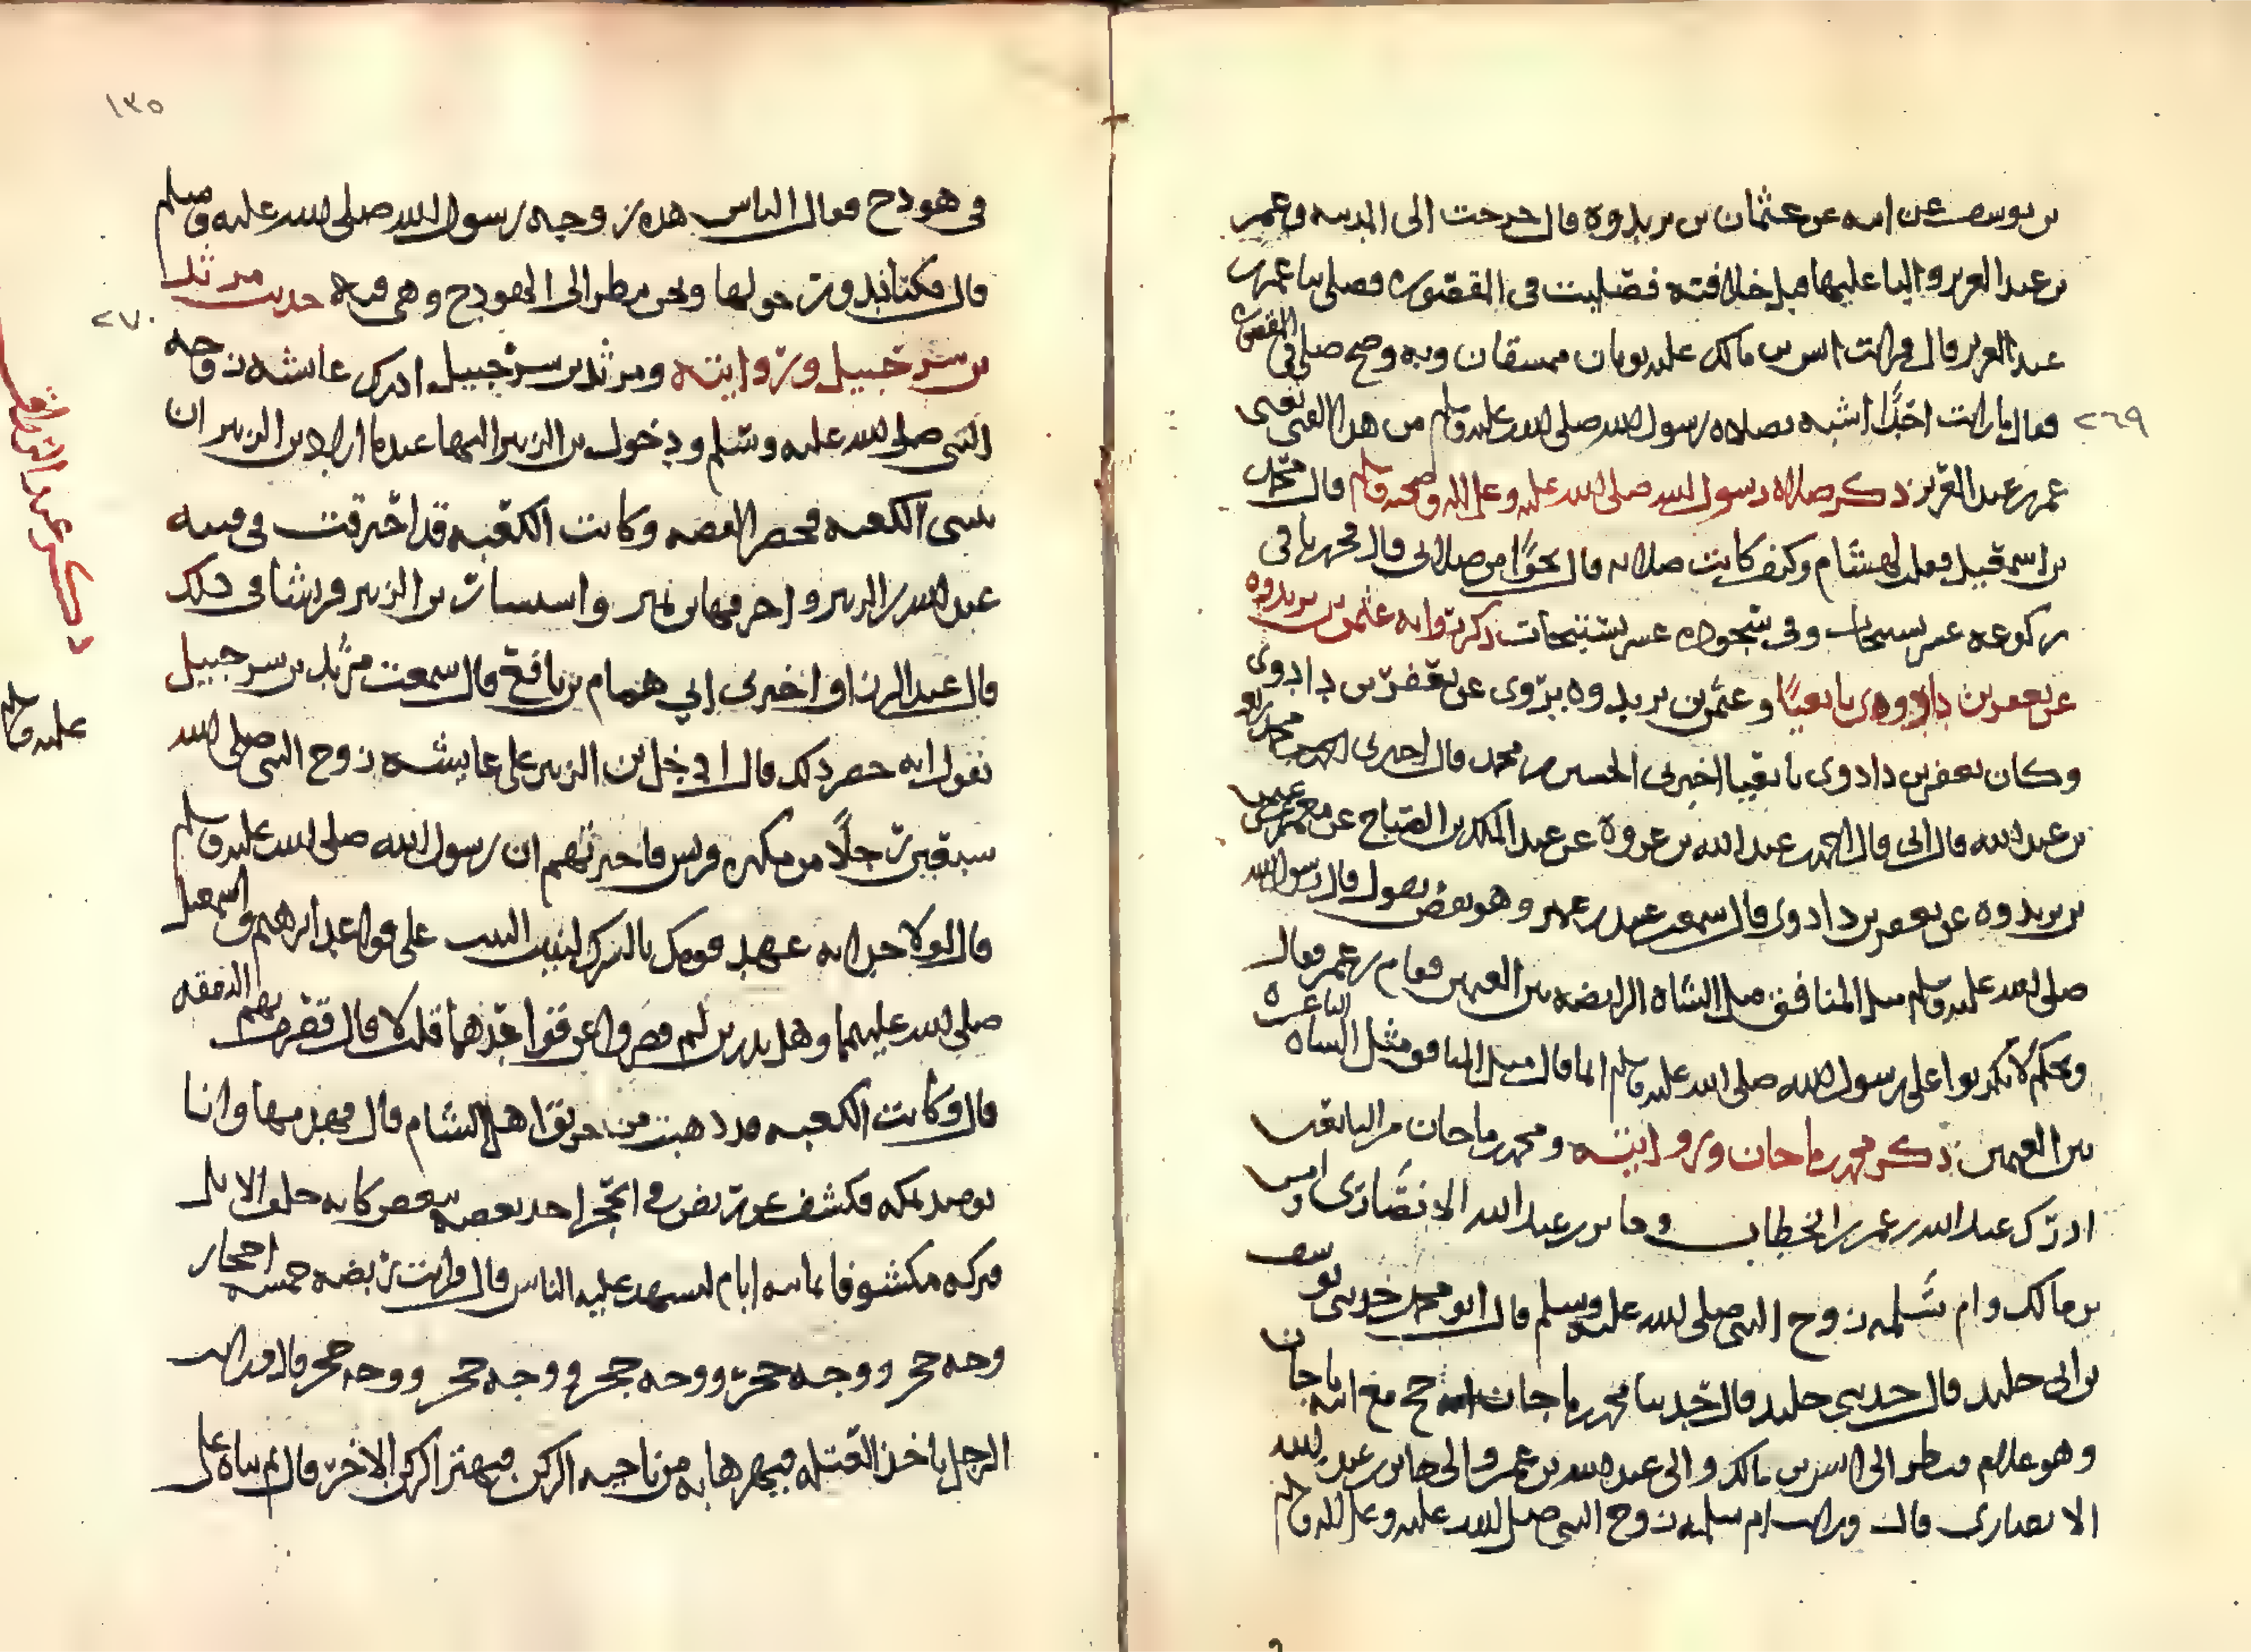 بن يوسف عن ابيه عن عثمان بن يزدويه قال خرجت الى المدينه وعمر
بن عبد العزيز واليا عليها قبل خلافته فصليت في المقصوره فصلى بنا عمر بن
عبد العزيز قال فرايت انس بن مالك عليه ثوبان ممشقان وبه وضح صلى في المقصوره
٢٦٩
فقال ما رايت احدا اشبه بصلاه رسول الله صلى الله عليه وسلم من هذا الفتى يعني
عمر بن عبد العزيز ذكر صلاه رسول الله صلى الله عليه وعلى اله وصحبه وسلم قال محمد
بن اسمعيل فقلت لهشام وكيف كانت صلاته قال نحوا من صلاتي قال فحزرنا في
ركوعه عشر تسبيحات وفي سجوده عشر تسبيحات ذكر روايه عثمن بن يزدويه
عن يعفر بن داذوي يانعيا وعثمن بن يزدويه يروي عن يعفر بن داذوي
وكان يعفر بن داذوي يانعيا اخبرني الحسين بن محمد قال اخبرني محمد
بن عبد الله قال ابي قال احمد عبد الله بن عروه عن عبد الملك بن الصباح عن معمر عن عثمن
بن يزدويه عن يعفر بن داذوي قال سمعت عبيد بن عمير وهو يقص يقول قال رسول الله
صلى الله عليه وسلم مثل المنافق مثل الشاه الرابضه بين الغنمين فقام بن عمر فقال
ويحكم لا تكذبوا على رسول الله صلى الله عليه وسلم انما قال مثل المنافق مثل الشاه العاعره
بين الغنمين ذكر محمد بن ماجان وروايته ومحمد بن ماجان من
ادرك عبد الله بن عمر بن الخطاب وجابر بن عبد الله الانصاري وانس
بن مالك وام سلمه زوج النبي صلى الله عليه وسلم قال ابو محمد حدثني يوسف
بن ابي خليد قال حدثني خليد قال حدثنا محمد بن ماجان انه حج مع ابيه ماجان
وهو غلام فنظر الى انس بن مالك والى عبد الله بن عمر والى جابر بن عبد الله
الانصاري قال ورايت ام سلمه زوج النبي صلى الله عليه وعلى اله وسلم
١٣٥
في هودج فقال الناس هذه زوجه رسول الله صلى الله عليه وسلم
قال فكنا ندور حولها ونحن ننظر الى الهودج وهي فيه حديث مرثد
٢٧٠
بن شرحبيل وروايته ومرثد بن شرحبيل ادرك عايشه زوجه
النبي صلى الله عليه وسلم ودخول بن الزبير اليها عندما اراد بن الزبير ان
يبني الكعبه فحضر القصه وكانت الكعبه قد احترقت في فتنه
عبد الله بن الزبير واحرقها بن نمير واستشار بن الزبير قريشا في ذلك
قال عبد الرزاق واخبرني ابي همام بن نافع قال سمعت مرثد بن شرحبيل
يقول انه حضر ذلك قال ادخل بن الزبير على عايشه زوج النبي صلى الله
سبعين رجلا من مكه وقريش فاخبرتهم ان رسول الله صلى الله عليه وسلم
قال لولا حداثه عهد قومك بالشرك لبنيت البيت على قواعد ابرهيم واسمعيل
صلى الله عليهما وهل تدرين لم قصروا عن قواعدها قلت لا قال قصرت بهم النفقه
قال وكانت الكعبه قد ذهبت من حريق اهل الشام قال فهدمها وانا
يوميذ بمكه فكشف عن ربض في الحجر احد بعضه ببعض كانه حلق الابل
فتركه مكشوفا ثمانيه ايام ليشهد عليه الناس قال فرايت ربضه خمسه احجار
وجه حجر ووجه حجر ووجه حجر ووجه حجر ووجه حجر قال ورايت
الرجل ياخذ العتله فيهزها به من ناحيه الركن فيهتز الركن الاخر قال ثم بناه على
عليه وسلم